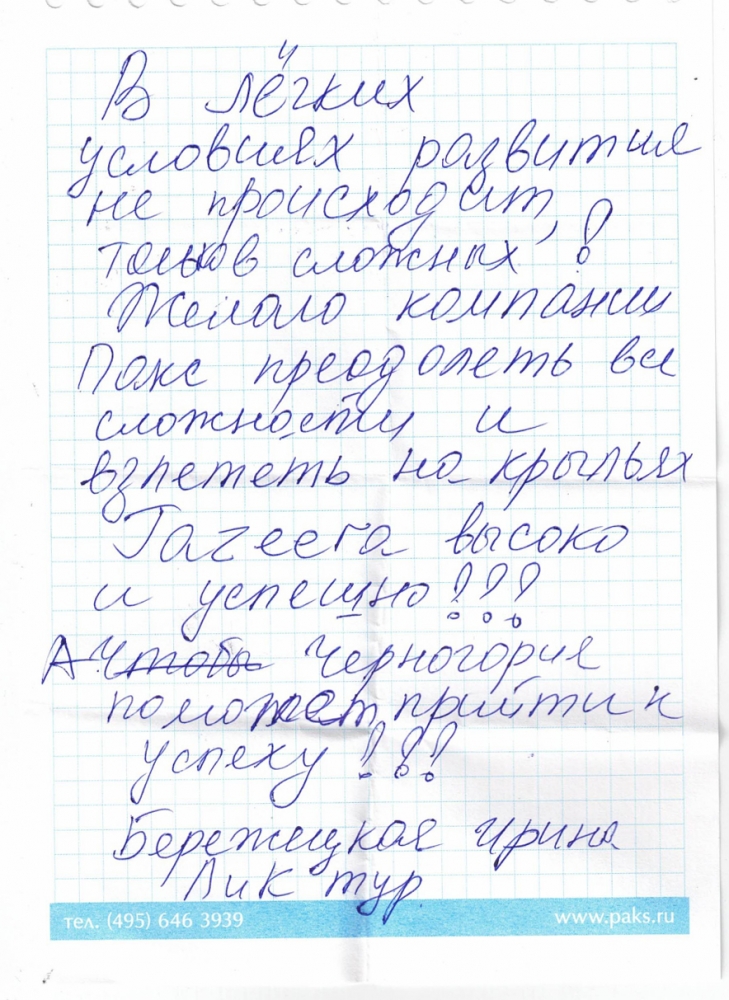 В лёгких
условиях развития
не происходит,
только в сложных!
Желаю компании
Пакс преодолеть все
сложности и
взлететь на крыльях
высоко
и успешно!!!
А Чтобы Черногория
поможет прийти к
успеху!!!
Бережицкая Ирина
Лик тур
тел. (495) 646 3939 www.paks.ru